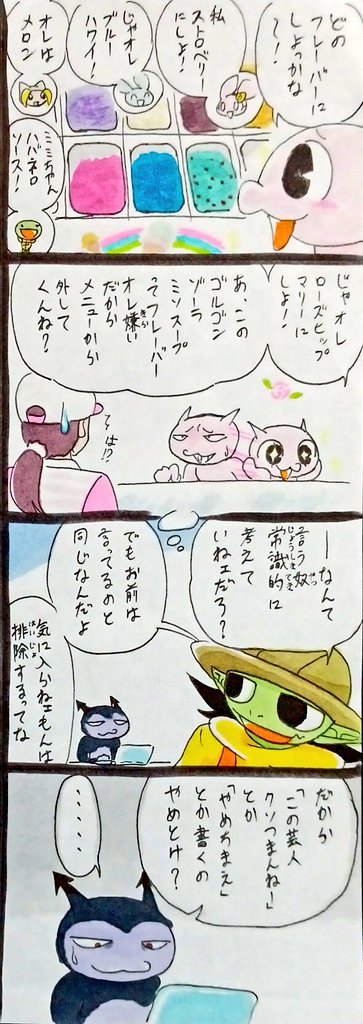 どの
フレーバーに
しよっかな
〜！
私
ストロベリー
にしよ！
じゃオレ
ブルー
ハワイ！
オレは
メロン
ミミちゃん
ハバネロ
ソース！
じゃオレ
ローズヒップ
マリーに
しよ！
あ、この
ゴルゴン
ゾーラ
ミソスープ
ってフレーバー
オレ嫌い
きら
だから
メニューから
外して
くんね？
は!?
ーなんて
言う奴
やつ
常識的に
じょうしきてき
考えて
いねェだろ？
でもお前は
言ってるのと
同じなんだよ
気に入らねェもんは
排除するってな
はいじょ
だから
「この芸人
クソつまんねー」
とか
「やめちまえ」
とか書くの
やめとけ？
・・・・・